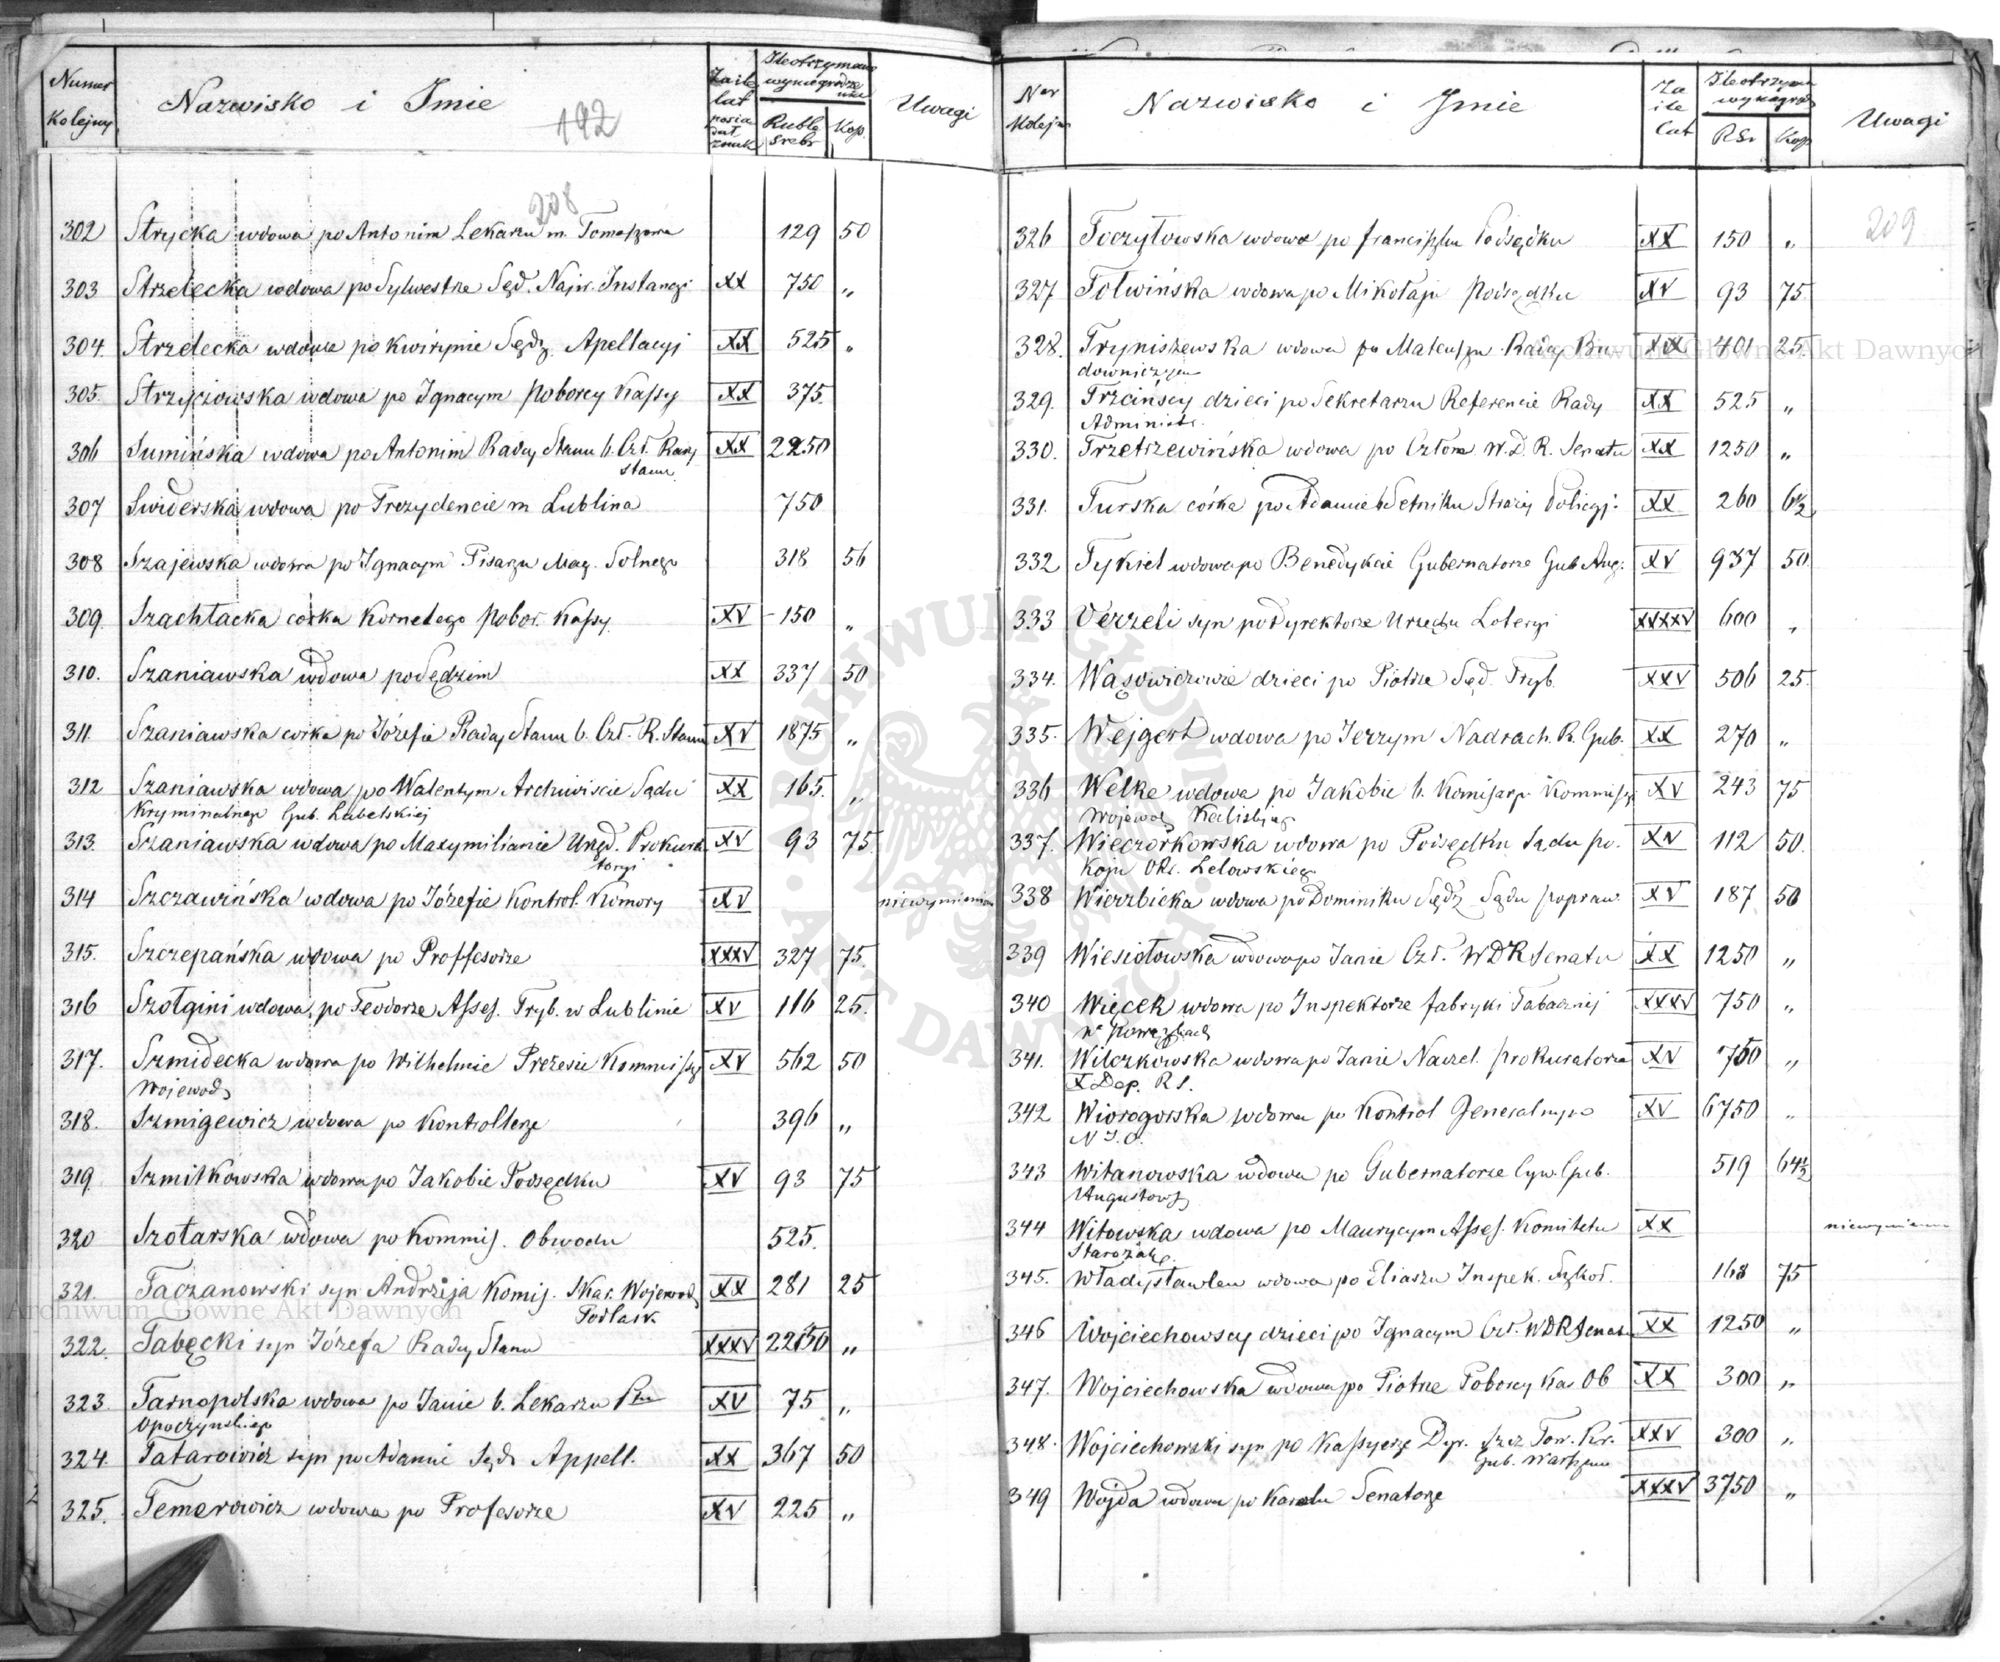 Numer Kolejny
Nazwisko i Imie
192
Za ile lat posiadał znak
Ile otrzymano wynagrodzenia
Ruble Srebr
Kop.
Uwagi
208
302 Strycka wdowa po Antonim Lekarzu m. Tomaszowa 129 50
303 Strzelecka wdowa po Sylwestrze Sęd. Najw. Instancyi XX 750 "
304. Strzelecka wdowa po Kwirynie Sędz. Apellacyj XX 525 "
305. Strzyżowska wdowa po Ignacym Poborcy Kassy XX 375.
306 Sumińska wdowa po Antonim Radcy Stanu b. Czł. Rady XX 2250
Stanu
307 Swiderska wdowa po Prezydencie m Lublina 750
308 Szajewska wdowa po Ignacym Pisarzu Mag. Solnego 318 56
309. Szachłacka corka Kornelego Pobor. Kassy. XV 150 "
310. Szaniawska wdowa po Sędzim XX 337 50
311. Szaniawska corka po Józefie Radcy Stanu b. Czł. R. Stanu XV 1875 "
312 Szaniawska wdowa po Walentym Archiwiscie Sądu XX 165. "
Kryminalnego Gub. Lubelskiej
313. Szaniawska wdowa po Maxymilianie Urzęd. Prokura XV 93 75.
toryi
314 Szczawińska wdowa po Józefie Kontrol. Komory XV niewymienion
315. Szczepańska wdowa po Proffesorze XXXV 327 75.
316 Szołgini wdowa po Teodorze Asses. Tryb. w Lublinie XV 116 25.
317. Szmidecka wdowa po Wilhelmie Prezesie Kommissyi XV 562 50
Wojewodz
318. Szmigewicz wdowa po Kontrollerze 396 "
319. Szmitkowska wdowa po Jakobie Podsędku XV 93 75
320 Szotarska wdowa po Kommis. Obwodu 525.
321. Taczanowski syn Andrzeja Komis. Skar. Wojewodz XX 281 25
Podlask
322. Tabęcki syn Józefa Radcy Stanu XXXV 2250 "
323. Tarnopolska wdowa po Janie b. Lekarzu Ptu XV 75 "
Opoczynskiego
324. Tatarowicz syn po Adamie Sędz Appell. XX 367 50
325. Temerowicz wdowa po Profesorze XV 225 "
Ner Kolejn
Nazwisko i Imie
Za ile Lat
Ile otrzyma wynagrodz
RSr
Kop
Uwagi
209
326 Toczyłowska wdowa po Franciszku Podsędku XX 150 "
327 Tolwińska wdowa po Mikołaju Podsędku XV 93 75.
328. Tryniszewska wdowa po Mateuszu Radcy Bu XX 401 25.
downiczym
329. Trzcińscy dzieci po Sekretarzu Referencie Rady XX 525 "
Administr.
330. Trzetrzewińska wdowa po Człon. W. D. R. Senatu XX 1250 "
331. Turska córka po Adamie b Setniku Straży Policyj. XX 260 6½
332 Tykiel wdowa po Benedykcie Gubernatorze Gub Aug. XV 937 50.
333 Verzeli syn po Dyrektorze Urzędu Loteryi XXXXV 600 "
334. Wąsowiczowie dzieci po Piotrze Sęd. Tryb. XXV 506 25.
335. Wejgert wdowa po Jerzym Nadrach. R. Gub. XX 270 "
336 Welke wdowa po Jakobie b. Komisarzu Kommissyi XV 243 75
Wojewodz Kaliskiego
337. Wieczorkowska wdowa po Podsędku Sądu po. XV 112 50.
Koju Okr. Lelowskiego
338 Wierzbicka wdowa po Dominiku Sędz Sądu popraw. XV 187 50
339 Wiesiołowska wdowa po Janie Czł. WDR Senatu XX 1250 "
340 Więcek wdowa po Inspektorze fabryki Tabacznej XXXV 750 "
w Powązkach
341. Wilczkowska wdowa po Janie Naczel. prokuratorze XV 750 "
X Dep. R S.
342 Wiorogorska wdowa po Kontrol Generalnym XV 6750 "
N. I. O.
343 Witanowska wdowa po Gubernatorze Cyw. Gub. 519 64½
Augustows
344 Witowska wdowa po Maurycym Asses. Komitetu XX niewymien
Starozak.
345. Władysławlew wdowa po Eliaszu Inspek. Szkoł. 168 75
346 Wojciechowscy dzieci po Ignacym Czł. WDR Senatu XX 1250 "
347. Wojciechowska wdowa po Piotrze Poborcy Kas Ob XX 300 "
348. Wojciechowski syn po Kassyerze Dyr. szcz Tow. Kr. XXV 300 "
Gub. Warszaw
349 Wojda wdowa po Karolu Senatorze XXXV 3750 "
Archiwum Główne Akt Dawnych
Archiwum Główne Akt Dawnych
ARCHIWUM GŁÓWNYCH AKT DAWNYCH